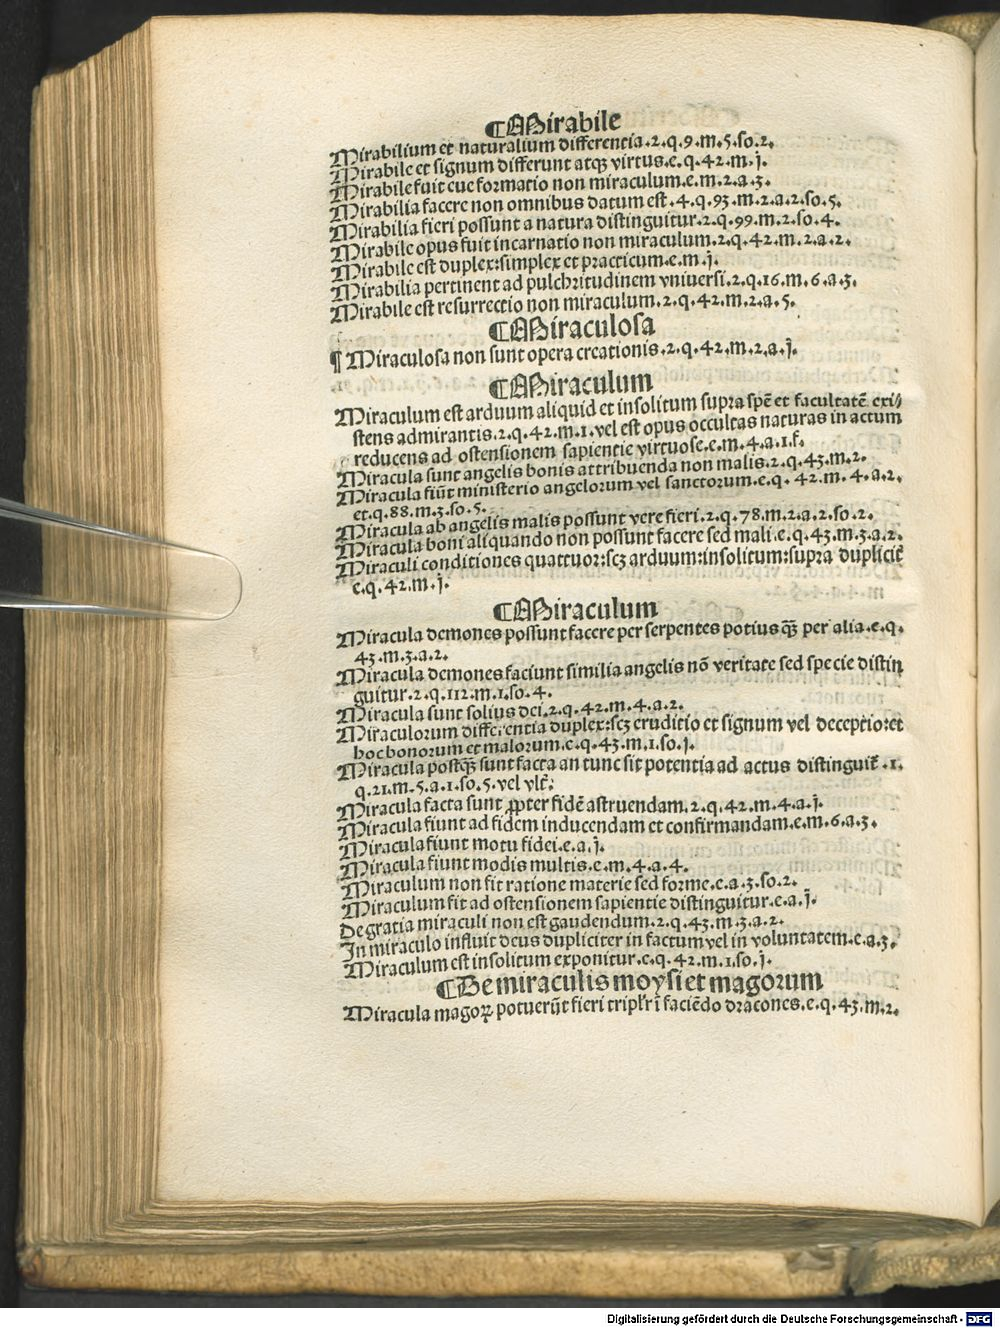 ¶Mirabile
Mirabilium et naturalium differentia.2.q.9.m.5.so.2.
Mirabile et signum differunt atqꝫ virtus.e.q.42.m.j.
Mirabile fuit eue formatio non miraculum.e.m.2.a.3.
Mirabilia facere non omnibus datum est.4.q.93.m.2.a.2.so.5.
Mirabilia fieri possunt a natura distinguitur.2.q.99.m.2.so.4.
Mirabile opus fuit incarnatio non miraculum.2.q.42.m.2.a.2.
Mirabile est duplex:simplex et practicum.e.m.j.
Mirabilia pertinent ad pulchritudinem vniuersi.2.q.16.m.6.a.3.
Mirabile est resurrectio non miraculum.2.q.42.m.2.a.5.
¶Miraculosa
¶ Miraculosa non sunt opera creationis.2.q.42.m.2.a.j.
¶Miraculum
Miraculum est arduum aliquid et insolitum supra spē et facultatē exi/
stens admirantis.2.q.42.m.1.vel est opus occultas naturas in actum
reducens ad ostensionem sapientie virtuose.e.m.4.a.1.f.
Miracula sunt angelis bonis attribuenda non malis.2.q.43.m.2.
Miracula fiūt ministerio angelorum vel sanctorum.e.q.42.m.4.a.2.
et.q.88.m.3.so.5.
Miracula ab angelis malis possunt vere fieri.2.q.78.m.2.a.2.so.2.
Miracula boni aliquando non possunt facere sed mali.e.q.43.m.3.a.2.
Miraculi conditiones quattuor:scꝫ arduum:insolitum:supra duplicit̄
e.q.42.m.j.
¶Miraculum
Miracula demones possunt facere per serpentes potius qꝫ̄ per alia.e.q.
43.m.3.a.2.
Miracula demones faciunt similia angelis nō veritate sed specie distin
guitur.2.q.112.m.1.so.4.
Miracula sunt solius dei.2.q.42.m.4.a.2.
Miraculorum differentia duplex:scꝫ eruditio et signum vel deceptio:et
hoc bonorum et malorum.e.q.43.m.1.so.j.
Miracula postqꝫ̄ sunt facta an tunc sit potentia ad actus distinguit̄.1.
q.21.m.5.a.1.so.5.vel vlt̄:
Miracula facta sunt ꝓpter fidē astruendam.2.q.42.m.4.a.j.
Miracula fiunt ad fidem inducendam et confirmandam.e.m.6.a.3.
Miracula fiunt motu fidei.e.a.j.
Miracula fiunt modis multis.e.m.4.a.4.
Miraculum non fit ratione materie sed forme.e.a.3.so.2.
Miraculum fit ad ostensionem sapientie distinguitur.e.a.j.
De gratia miraculi non est gaudendum.2.q.43.m.3.a.2.
In miraculo influit deus dupliciter in factum vel in voluntatem.e.a.3.
Miraculum est insolitum exponitur.e.q.42.m.1.so.j.
¶De miraculis moysi et magorum
Miracula magoꝝ potuerūt fieri tripl'r ī faciēdo dracones.e.q.43.m.2.
Digitalisierung gefördert durch die Deutsche Forschungsgemeinschaft - DFG